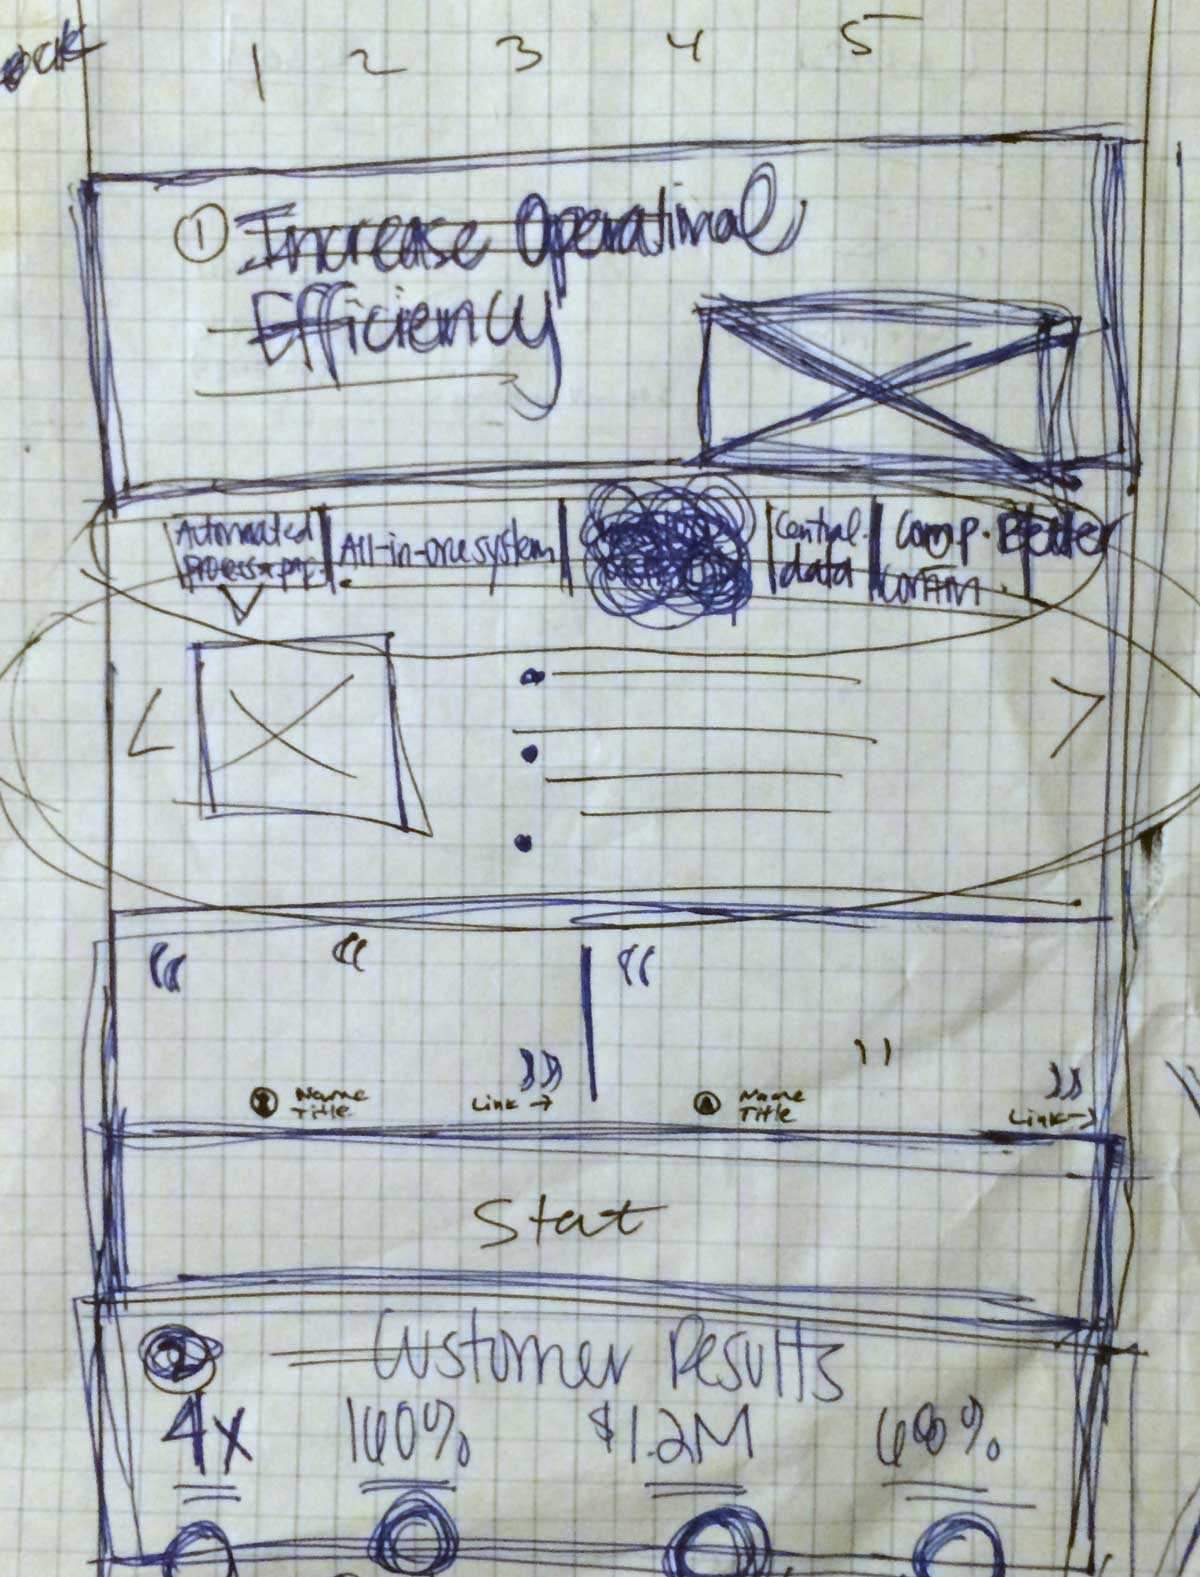 1 2 3 4 5
① Increase Operational
Efficiency
Automated
All-in-one system
Central
data
Comp. Better
comm.
“ “ “
” ” ”
Name
Title
Link →
Name
Title
Link →
Start
2 Customer Results
4x 160% $1.2M 60%